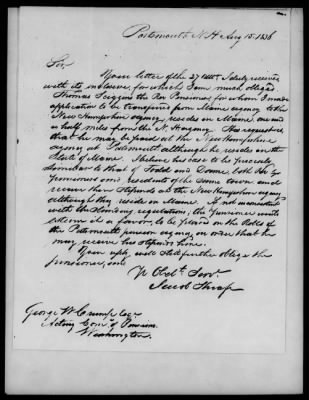 Portsmouth N.H. Aug 15. 1836
Sir,
Your letter of the 27 Ult. I duly received
with its inclosure, for which I am much obliged.
Thomas the Pensioner, for whom I made
application to be transferred from Maine agency to the
New Hampshire agency resides in Maine, one and
a half miles from the N. H. agency. His request is
that he may be paid at the New Hampshire
agency at Portsmouth although he resides on the
State of Maine. I believe his case to be precisely
similar to that of Todd and both
Pensioners and residents of the same town and
receive their stipends at the New Hampshire agency
although they reside in Maine. If not inconsistent
with the standing regulations, the Pensioner would
it as a favor, to be placed on the Rolls
of the Portsmouth pension agency, in order that he
may receive his stipend here.
Your will still further oblige the
pensioner, and
Yr Obdt. Servt.
George W. Crump Esq.
Acting Comr. of Pensions.
Washington.